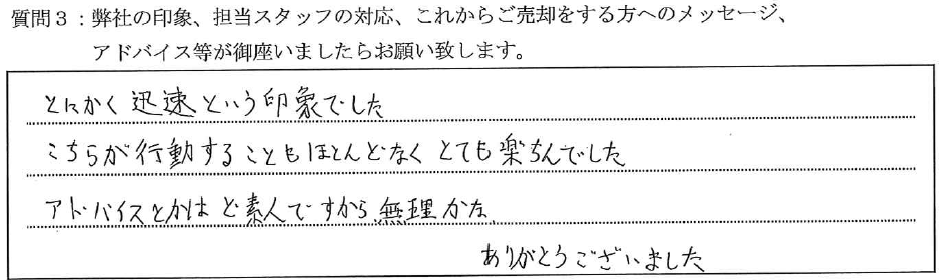 質問３：弊社の印象、担当スタッフの対応、これからご売却をする方へのメッセージ、
アドバイス等が御座いましたらお願い致します。
とにかく迅速という印象でした
こちらが行動することもほとんどなくとても楽ちんでした
アドバイスとかはど素人ですから、無理かな
ありがとうございました